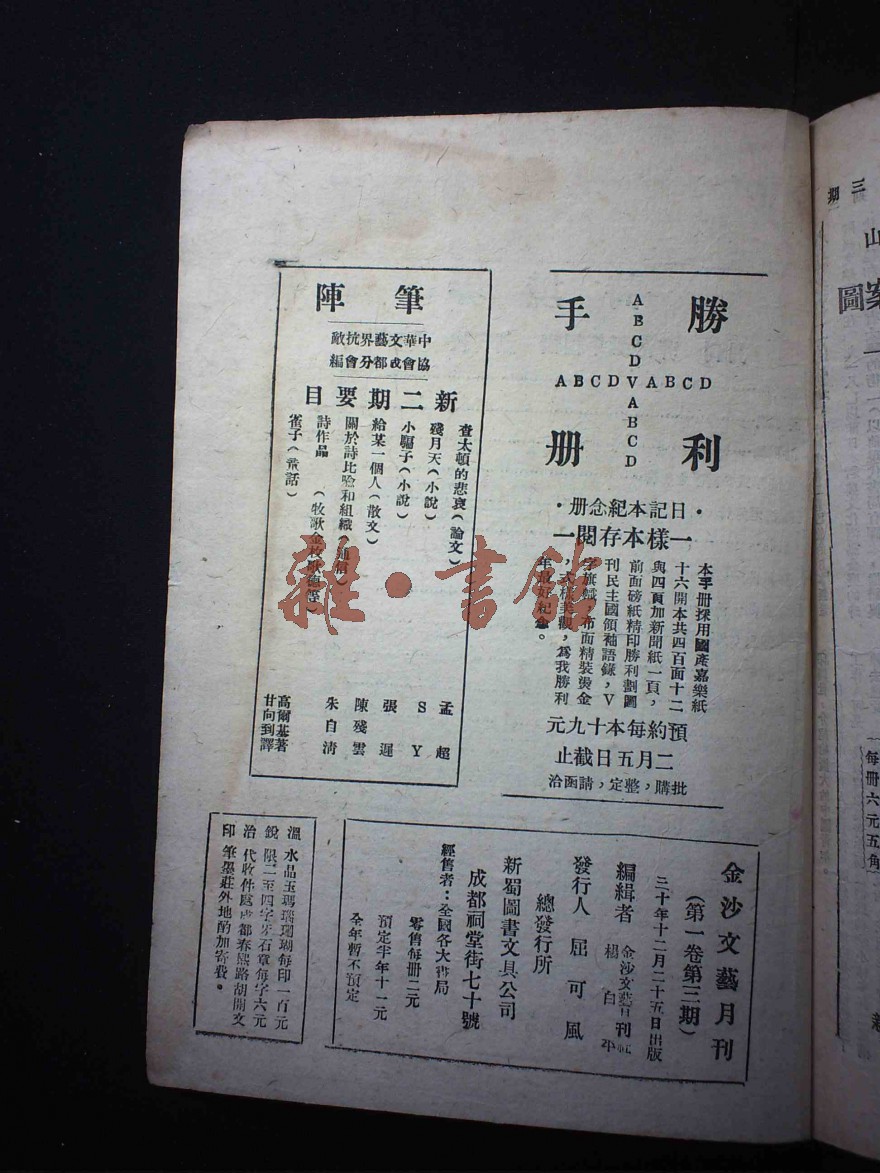 勝利手册
A
B
C
D
ABCDVABCD
A
B
C
D
·日記本紀念册·
一樣本存閱一
本手册採用國產嘉樂紙
十六開本共四百面十二
與四頁加新聞紙一頁，
前面磅紙精印勝利劃圖
刊民主國領袖語錄，V
字旗幟，布面精裝燙金
，式樣美觀，為我勝利
年最好紀念。
預約每本十九元
二月五日截止
批購，整定，請函洽
筆陣
中華文藝界抗敵
協會成都分會編
新二期要目
查太頓的悲哀（論文） 孟超
殘月天（小說） SY
小騙子（小說） 張邏
給某一個人（散文） 陳殘雲
關於詩比喻和組織（通信） 朱自清
詩作品 （牧歌金枚歐德等）
雀子（童話） 高爾基著
甘向到譯
金沙文藝月刊
（第一卷第三期）
三十年十二月二十五日出版
編緝者 金沙文藝月刊社
楊白平
發行人 屈可風
總發行所
新蜀圖書文具公司
成都祠堂街七十號
經售者：全國各大書局
零售每冊二元
預定半年十一元
全年暫不預定
溫銳治印
水晶玉瑪瑙珊瑚每印一百元
限二至四字牙石章每字六元
代收件處成都春熙路胡開文
筆墨莊外地酌加寄費。
三期
山
案
圖
每冊六元五角
雜·書館